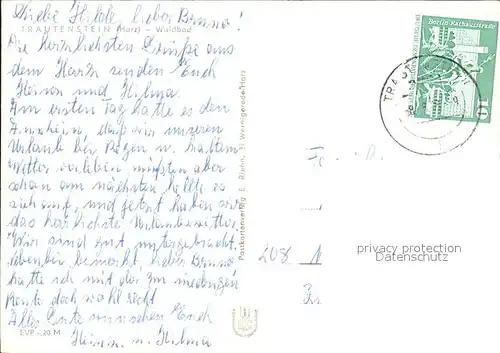 Liebe Hilde, lieber Bruno!
TRAUTENSTEIN (Harz) - Waldbad
Die herzlichsten Grüße aus
dem Harz senden Euch
Heinon und Hilma.
Am ersten Tag hatte es den
Anschein, daß wir unseren
Urlaub bei Regen u. kaltem
Wetter verleben müßten aber
schon am nächsten hellte es
sich auf, und jetzt haben wir
das herrlichste Urlaubswetter.
Wir sind gut untergebracht.
nebenbei bemerkt, lieber Bruno
hatte ich mit der zu niedrigen
Rente doch wohl recht
Alles Gute wünschen Euch
u. Hilma
EVP -,20 M
Postkartenverlag E. Riehn, 37 Wernigerode/Harz
Berlin Rathausstraße
10
208
privacy protection
Datenschutz